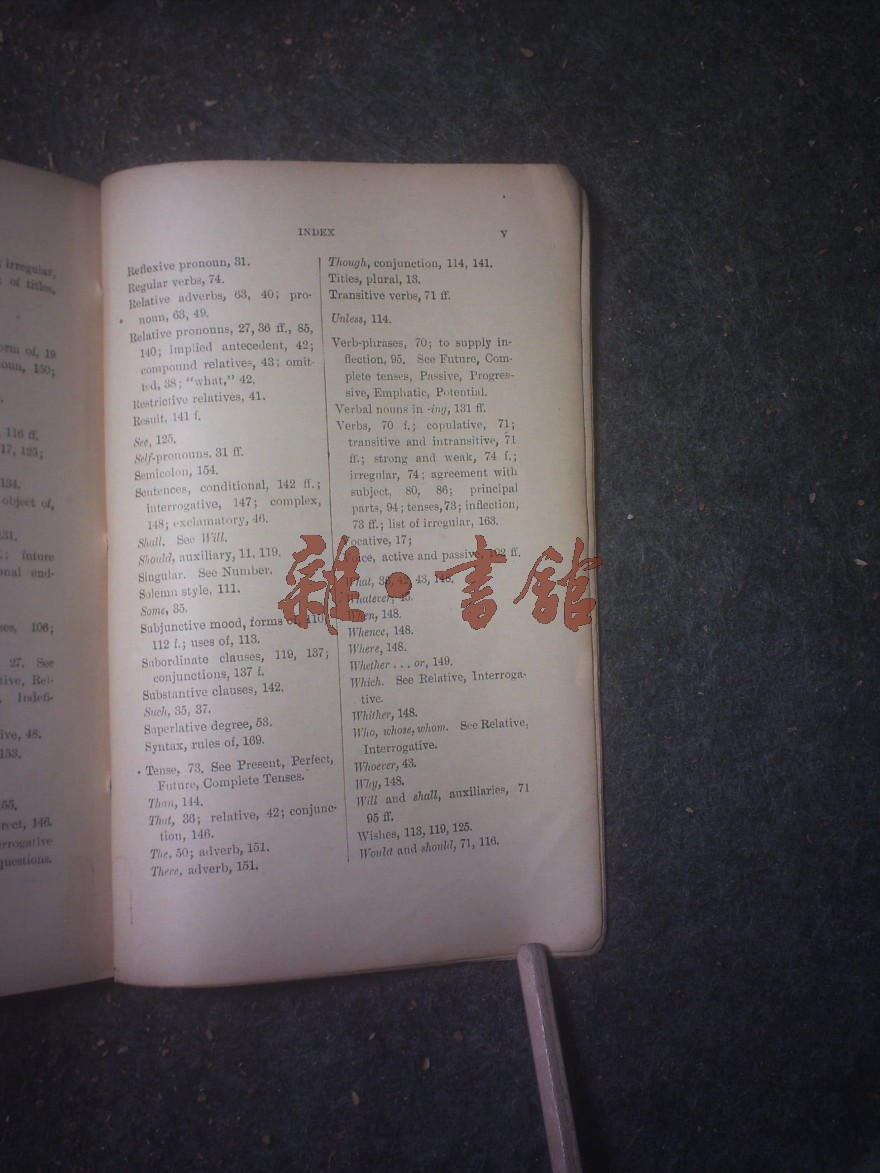 irregular,
of titles,
orm of, 19
oun, 150;
116 ff.
17, 125;
134.
object of,
131.
; future
onal end-
ses, 106;
27. See
tive, Rel-
Indefi-
ive, 48.
153.
55.
rect, 146.
errogative
questions.
INDEX
V
Reflexive pronoun, 31.
Regular verbs, 74.
Relative adverbs, 63, 40; pro-
noun, 63, 49.
Relative pronouns, 27, 36 ff., 85,
140; implied antecedent, 42;
compound relatives, 43; omit-
ted, 38; "what," 42.
Restrictive relatives, 41.
Result, 141 f.
See, 125.
Self-pronouns, 31 ff.
Semicolon, 154.
Sentences, conditional, 142 ff.;
interrogative, 147; complex,
148; exclamatory, 46.
Shall. See Will.
Should, auxiliary, 11, 119.
Singular. See Number.
Solemn style, 111.
Some, 35.
Subjunctive mood, forms of, 110,
112 f.; uses of, 113.
Subordinate clauses, 119, 137;
conjunctions, 137 f.
Substantive clauses, 142.
Such, 35, 37.
Superlative degree, 53.
Syntax, rules of, 169.
Tense, 73. See Present, Perfect,
Future, Complete Tenses.
Than, 144.
That, 36; relative, 42; conjunc-
tion, 146.
The, 50; adverb, 151.
There, adverb, 151.
Though, conjunction, 114, 141.
Titles, plural, 13.
Transitive verbs, 71 ff.
Unless, 114.
Verb-phrases, 70; to supply in-
flection, 95. See Future, Com-
plete tenses, Passive, Progres-
sive, Emphatic, Potential.
Verbal nouns in -ing, 131 ff.
Verbs, 70 f.; copulative, 71;
transitive and intransitive, 71
ff.; strong and weak, 74 f.;
irregular, 74; agreement with
subject, 80, 86; principal
parts, 94; tenses, 73; inflection,
73 ff.; list of irregular, 163.
Vocative, 17;
Voice, active and passive, ff.
What, 43,
Whatever,
When, 148.
Whence, 148.
Where, 148.
Whether . . . or, 149.
Which. See Relative, Interroga-
tive.
Whither, 148.
Who, whose, whom. See Relative,
Interrogative.
Whoever, 43.
Why, 148.
Will and shall, auxiliaries, 71
95 ff.
Wishes, 113, 119, 125.
Would and should, 71, 116.
雜·書館